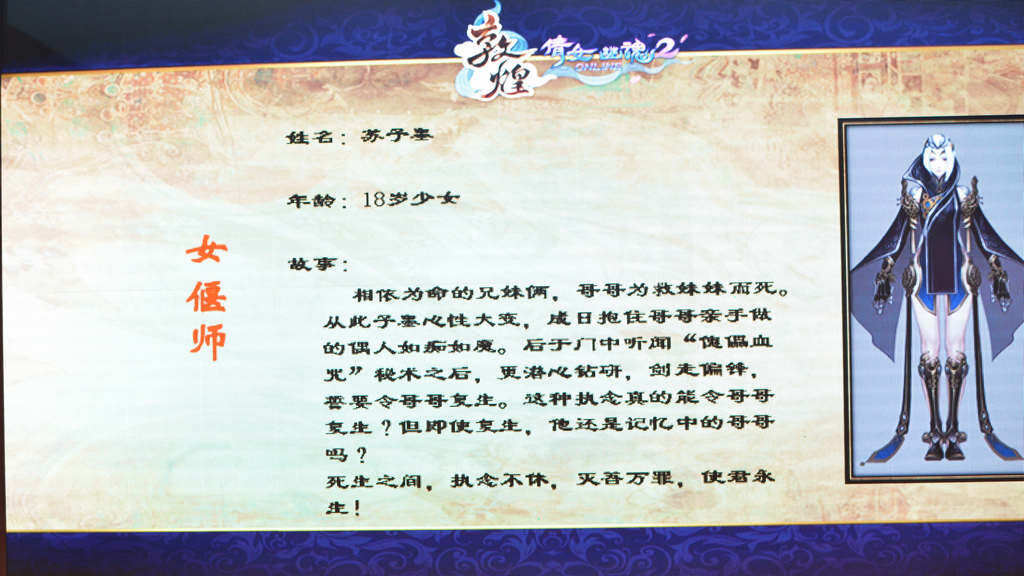 敦煌
倩女幽魂2
ONLINE
姓名：苏子墨
年龄：18岁少女
女偃师
故事：
相依为命的兄妹俩，哥哥为救妹妹而死。
从此子墨心性大变，成日抱住哥哥亲手做
的偶人如痴如魔。后于门中听闻“傀儡血
咒”秘术之后，更潜心钻研，剑走偏锋，
誓要令哥哥复生。这种执念真的能令哥哥
复生？但即使复生，他还是记忆中的哥哥
吗？
死生之间，执念不休，灭吾万罪，使君永
生！